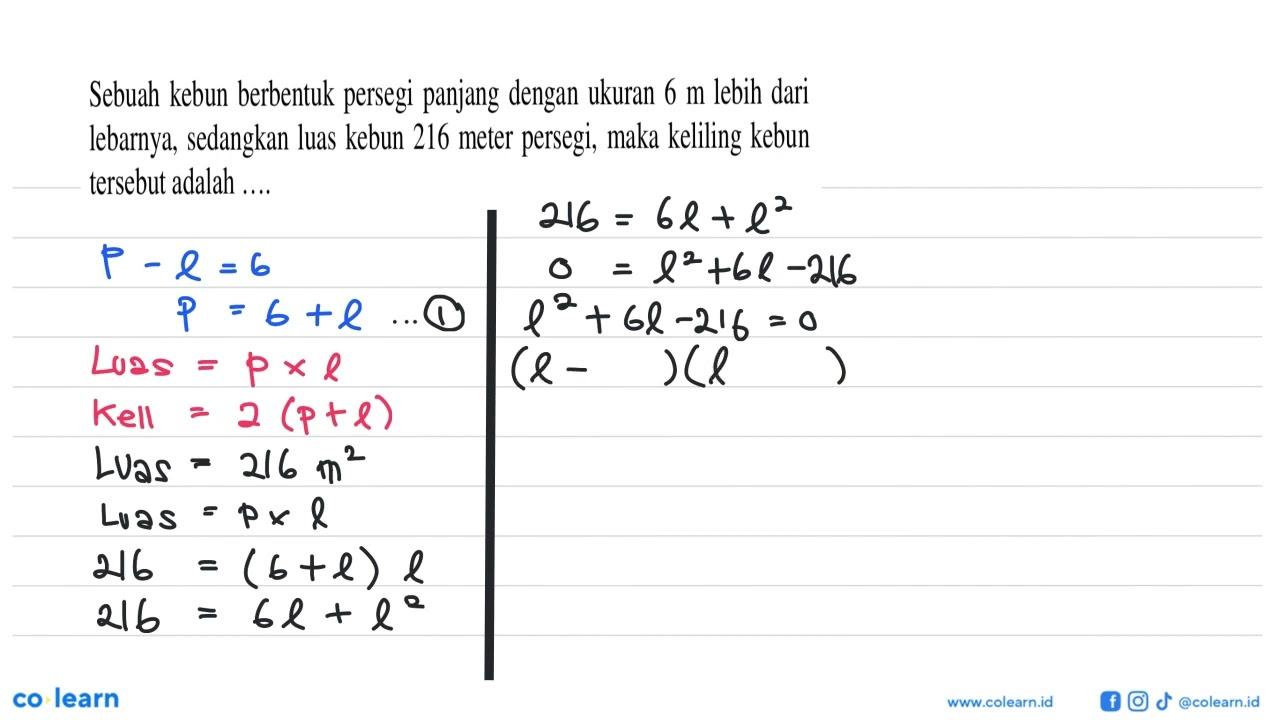 Sebuah kebun berbentuk persegi panjang dengan ukuran 6 m lebih dari
lebarnya, sedangkan luas kebun 216 meter persegi, maka keliling kebun
tersebut adalah ....
P - l = 6
P = 6 + l ...①
Luas = p × l
Kell = 2 (p + l)
Luas = 216 m²
Luas = p × l
216 = (6 + l) l
216 = 6l + l²
216 = 6l + l²
0 = l² + 6l - 216
l² + 6l - 216 = 0
(l -    )(l    )
co learn
www.colearn.id
@colearn.id